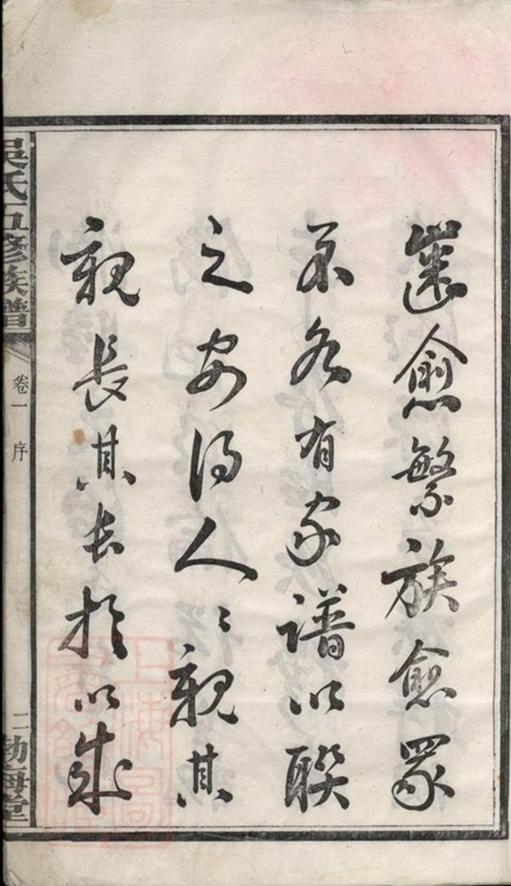 蕃愈繁族愈眾
不各有家譜以聯
之安得人〻親其
親長其長於以成
吳氏五修族譜
卷一 序
二 勃海堂